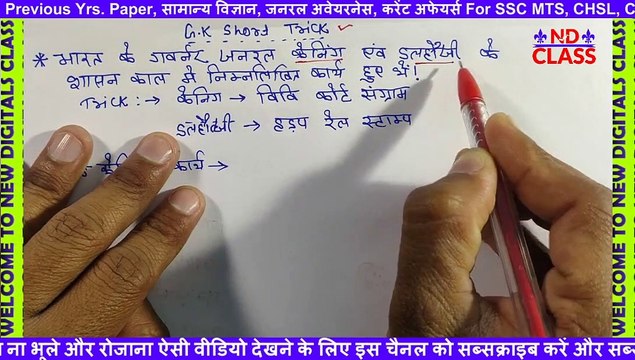 Previous Yrs. Paper, सामान्य विज्ञान, जनरल अवेयरनेस, करेंट अफेयर्स For SSC MTS, CHSL, C
G.K Short Trick ✓
* भारत के गवर्नर जनरल कैनिंग एवं डलहौजी के
शासन काल में निम्नलिखित कार्य हुए थे!
Trick :→ कैनिंग → विवि कोर्ट संग्राम
डलहौजी → हड़प रेल स्टाम्प
कार्य →
ND
CLASS
WELCOME TO NEW DIGITALS CLASS
WELCOME TO NEW DIGITALS CLASS
ना भूले और रोजाना ऐसी वीडियो देखने के लिए इस चैनल को सब्सक्राइब करें और सब